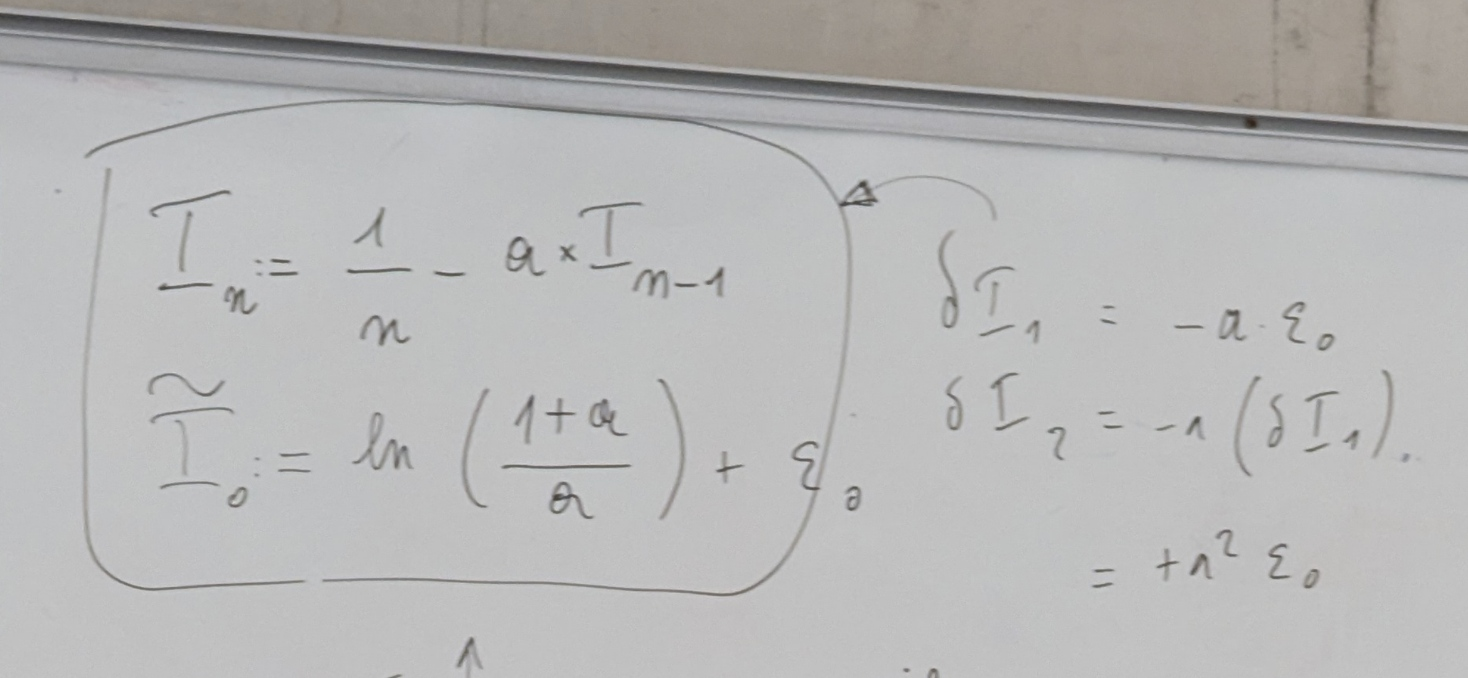 I_n := 1/n - a × I_{n-1}
Ĩ_0 := ln((1+a)/a) + ε_0
δI_1 = -a · ε_0
δI_2 = -a (δI_1).
= +a² ε_0